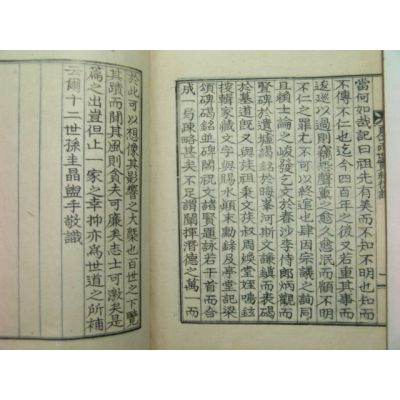 當何如哉記曰祖先有美而不知不明也知而
不傳不仁也迄今四百年之後又若重其事而
逡巡以過則竊恐愈久愈泯而顧不免不明
不仁之罪不可以終逭也肆因宗議之詢同
且賴士論之峻發乞文於春沙李侍郎炳觀而
賢碑於遺墟謁銘於晦峯河斯文謙鎭而表碣
於墓道旣又與族弟秉顚族叔周煥堂姪鳴鉉
搜輯家藏文字與賜水顚末勳錄及亭堂記梁
頌碑碣銘並碑閣祝文諸賢題詠若干首而合
成一局疎略甚矣不足謂闡揮潛德之萬一而
於此可以想像其影響之大槩也百世之下覽
其蹟而聞其風則貪夫可廉矣志士可激矣是
篇之出豈但止一家之幸抑亦爲世道之所補
云爾十二世孫圭晶盥手敬識